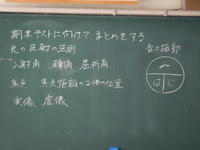 期末テストに向けて まとめをする
光の反射の法則
入射角 反射角 屈折角
焦点 焦点距離の2倍の位置
実像 虚像
音=振動